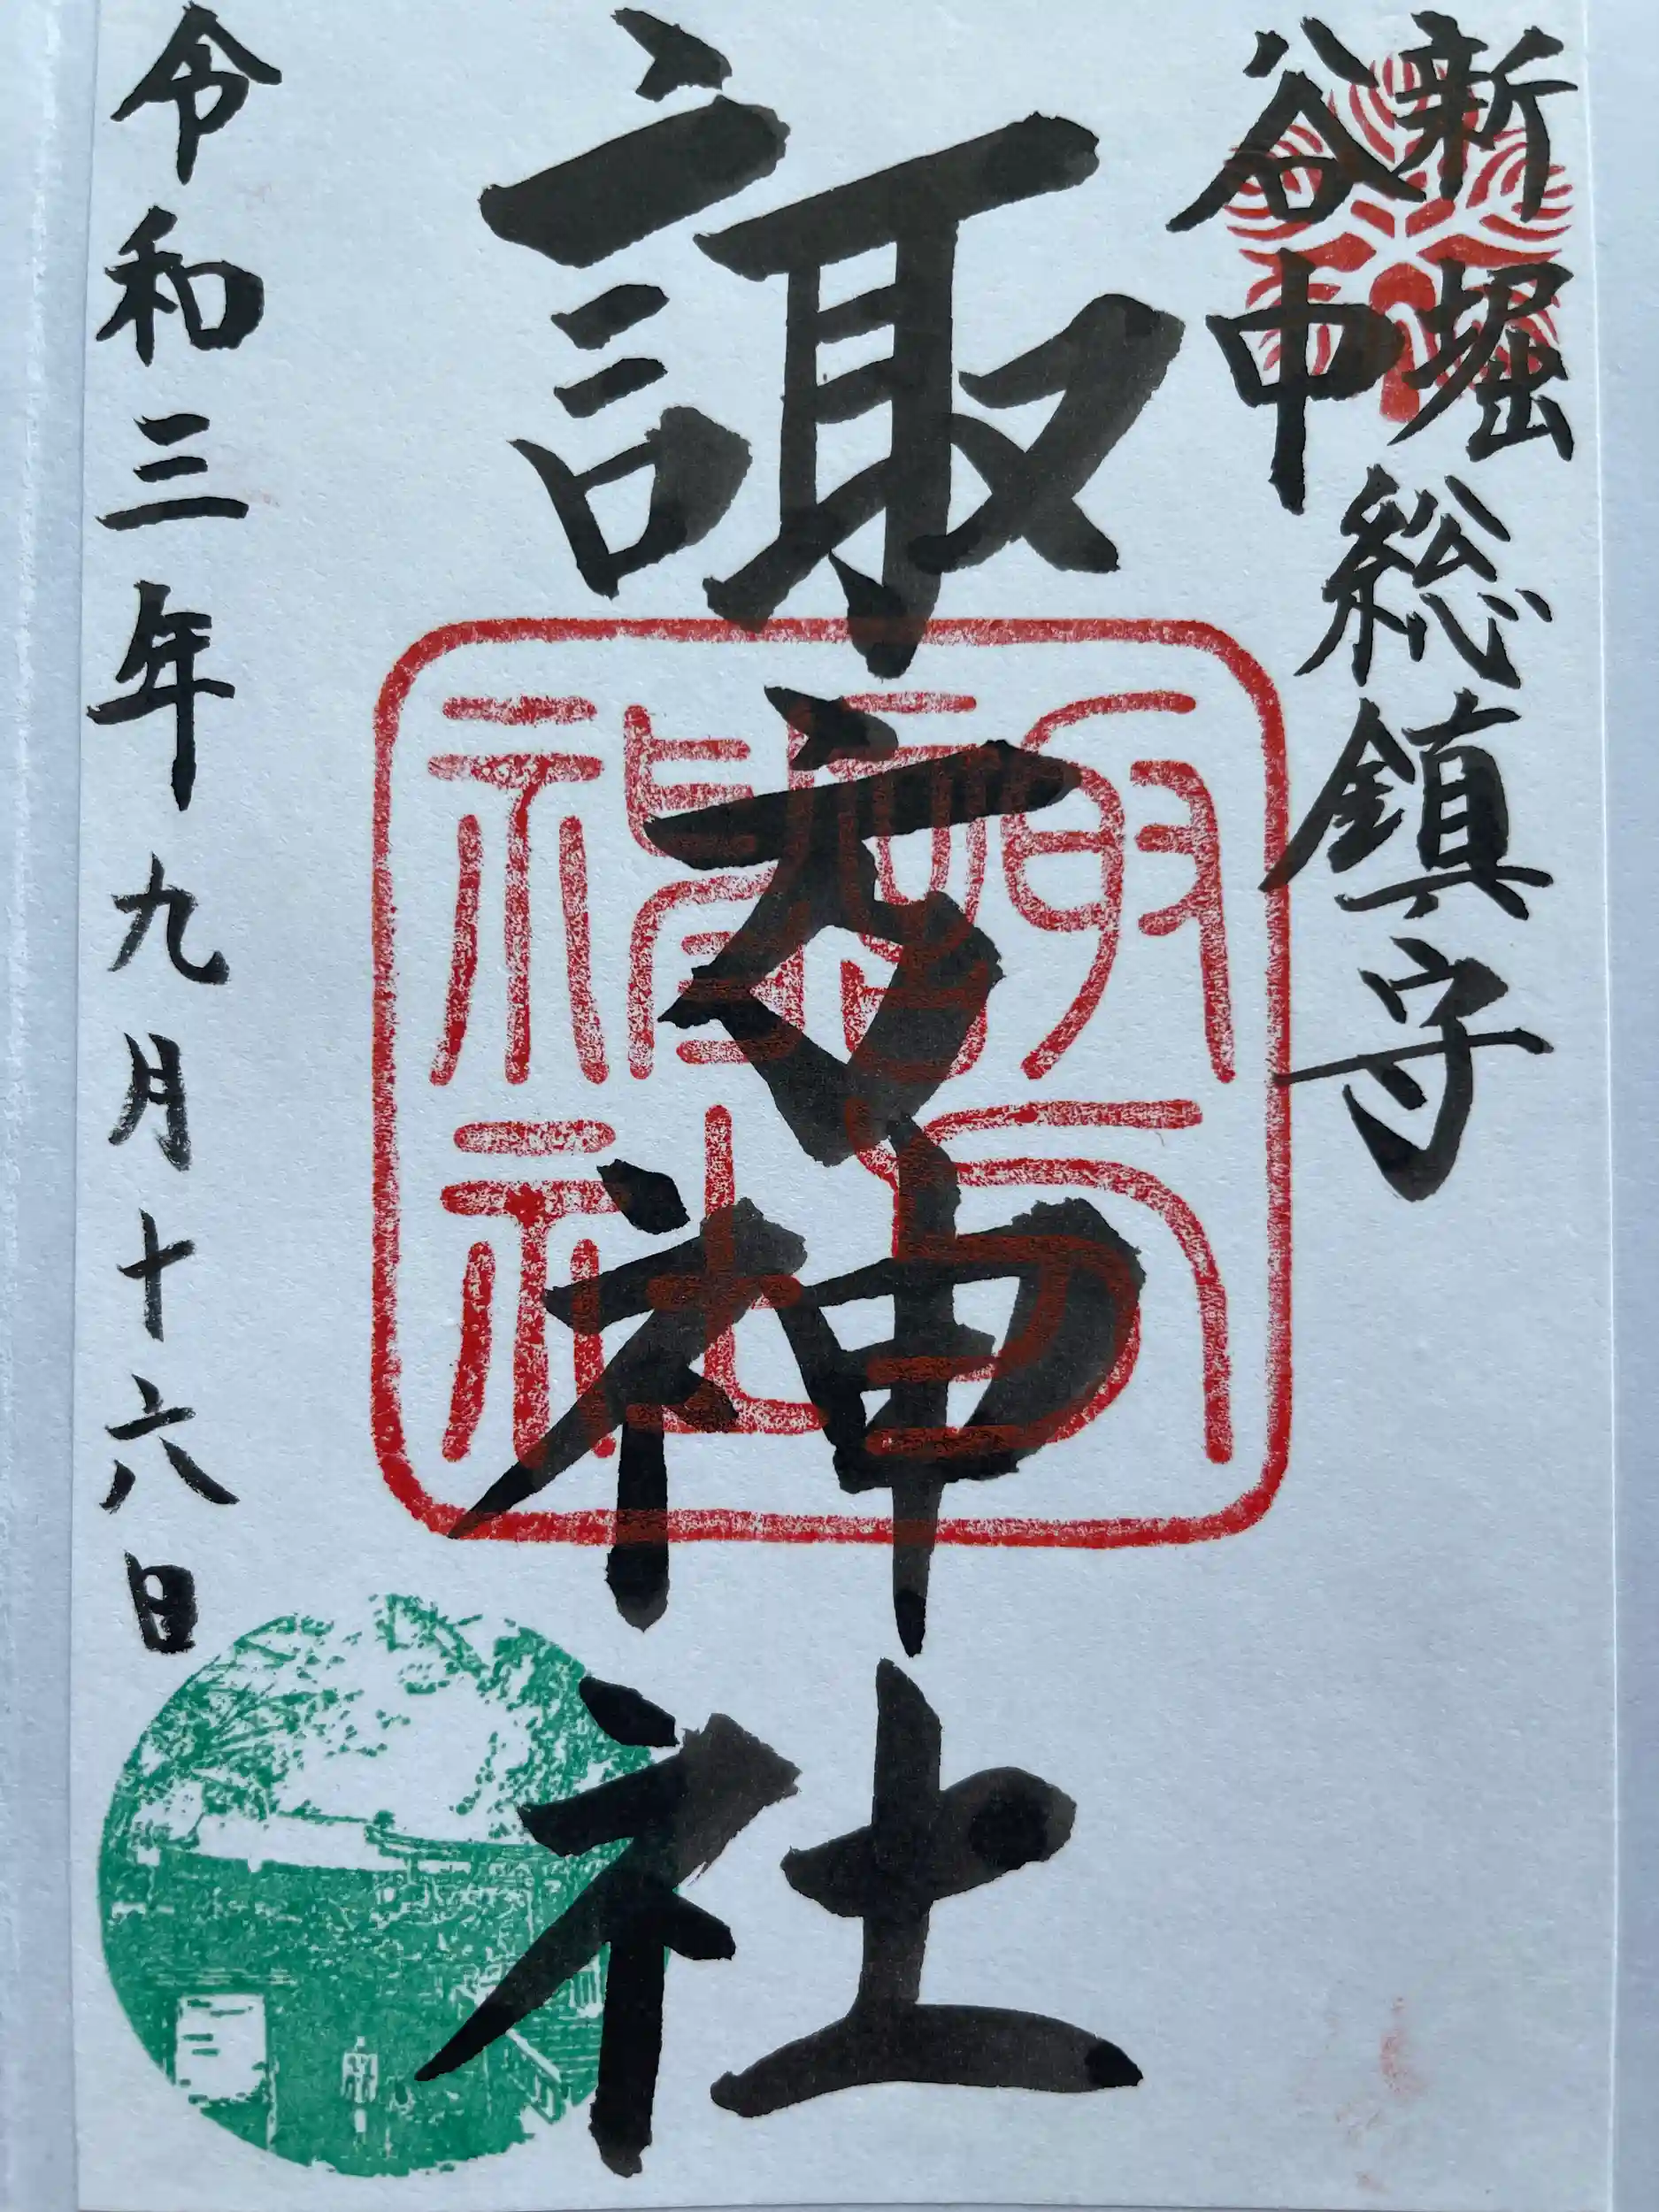 新堀
谷中
総鎮守
諏方神社
令和三年九月十六日